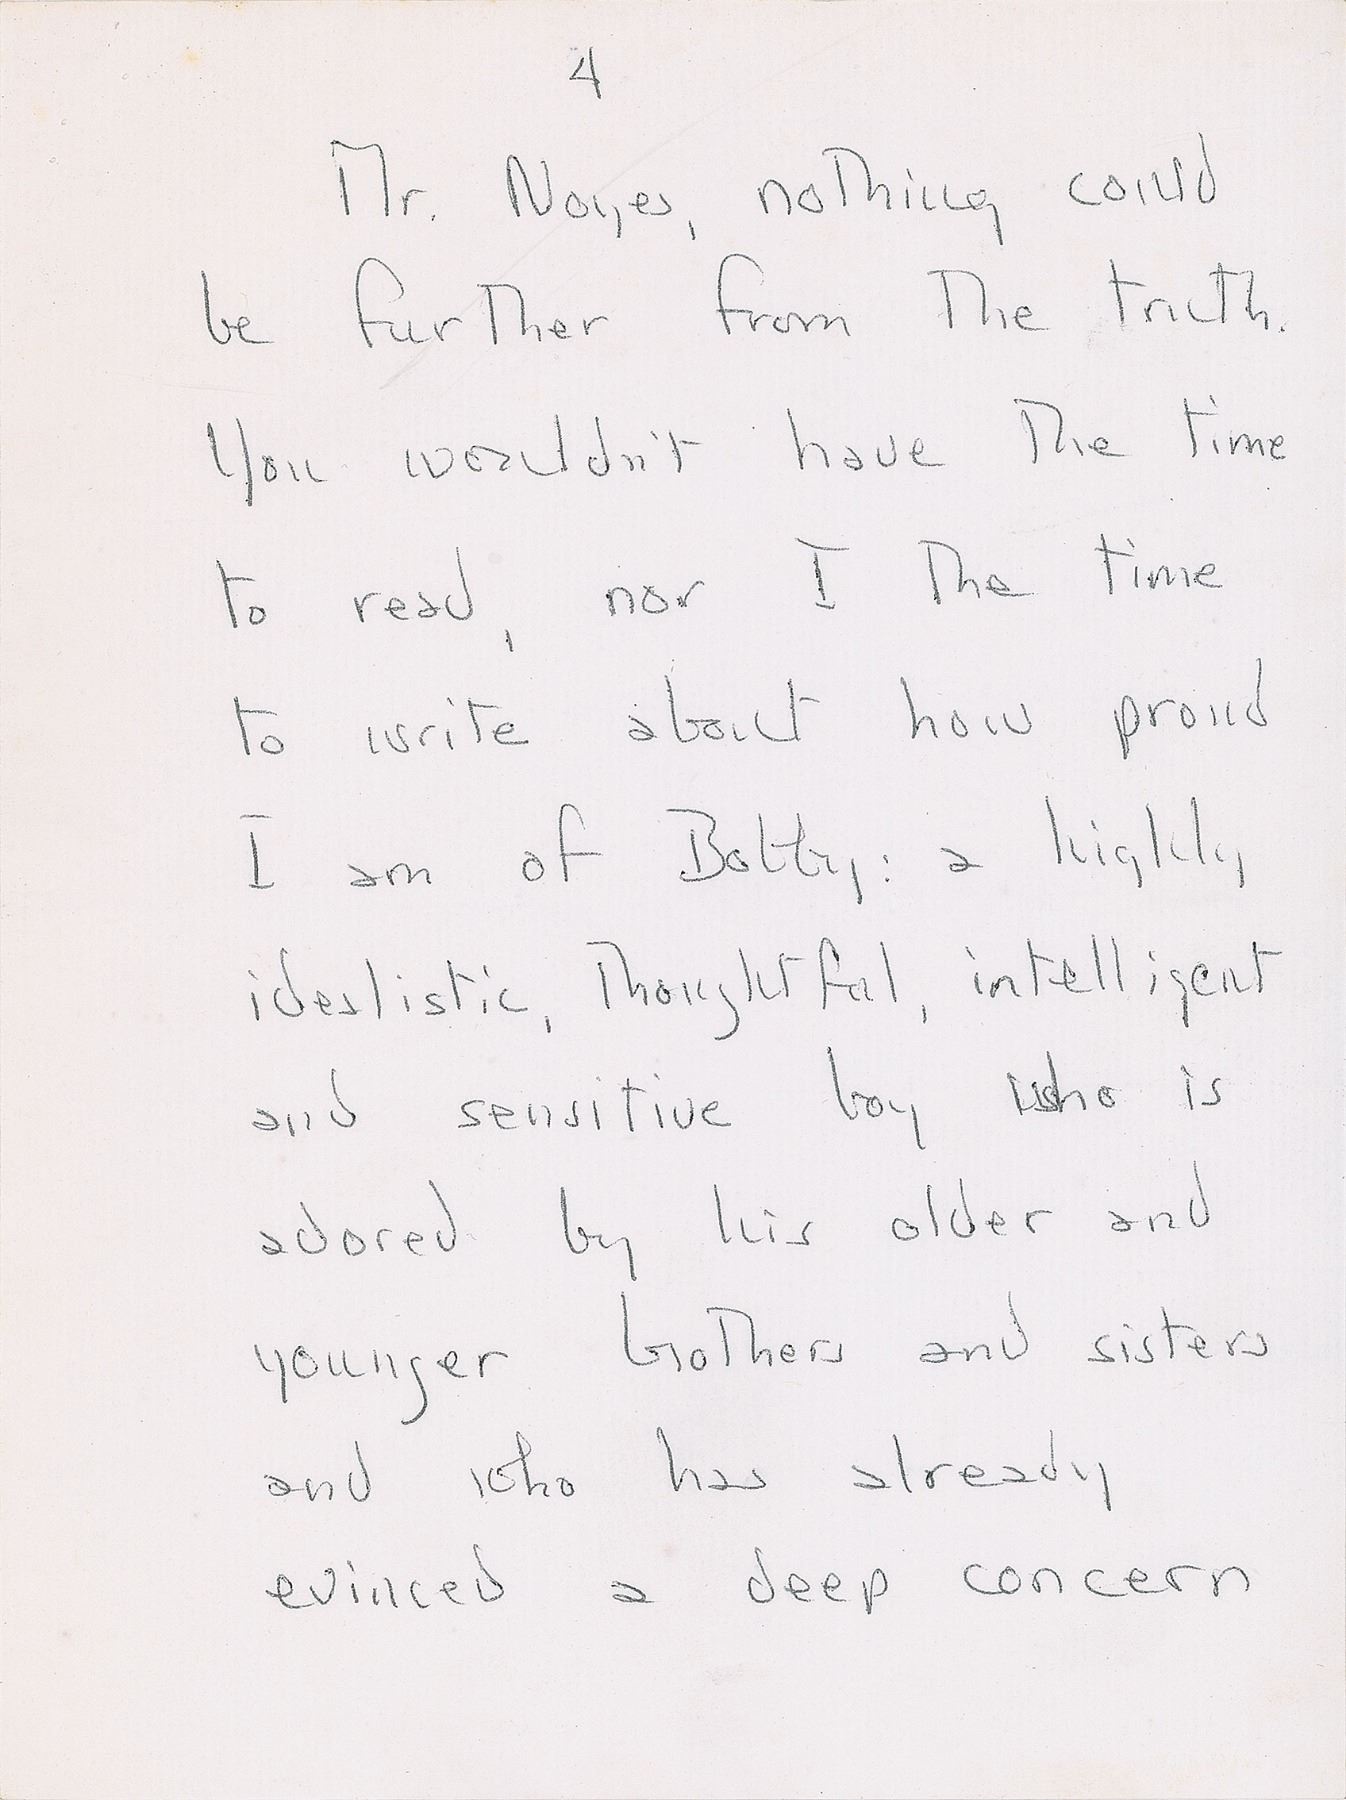 4
Mr. Noyes, nothing could
be further from the truth.
You wouldn't have the time
to read, nor I the time
to write about how proud
I am of Bobby: a highly
idealistic, thoughtful, intelligent
and sensitive boy who is
adored by his older and
younger brothers and sisters
and who has already
evinced a deep concern